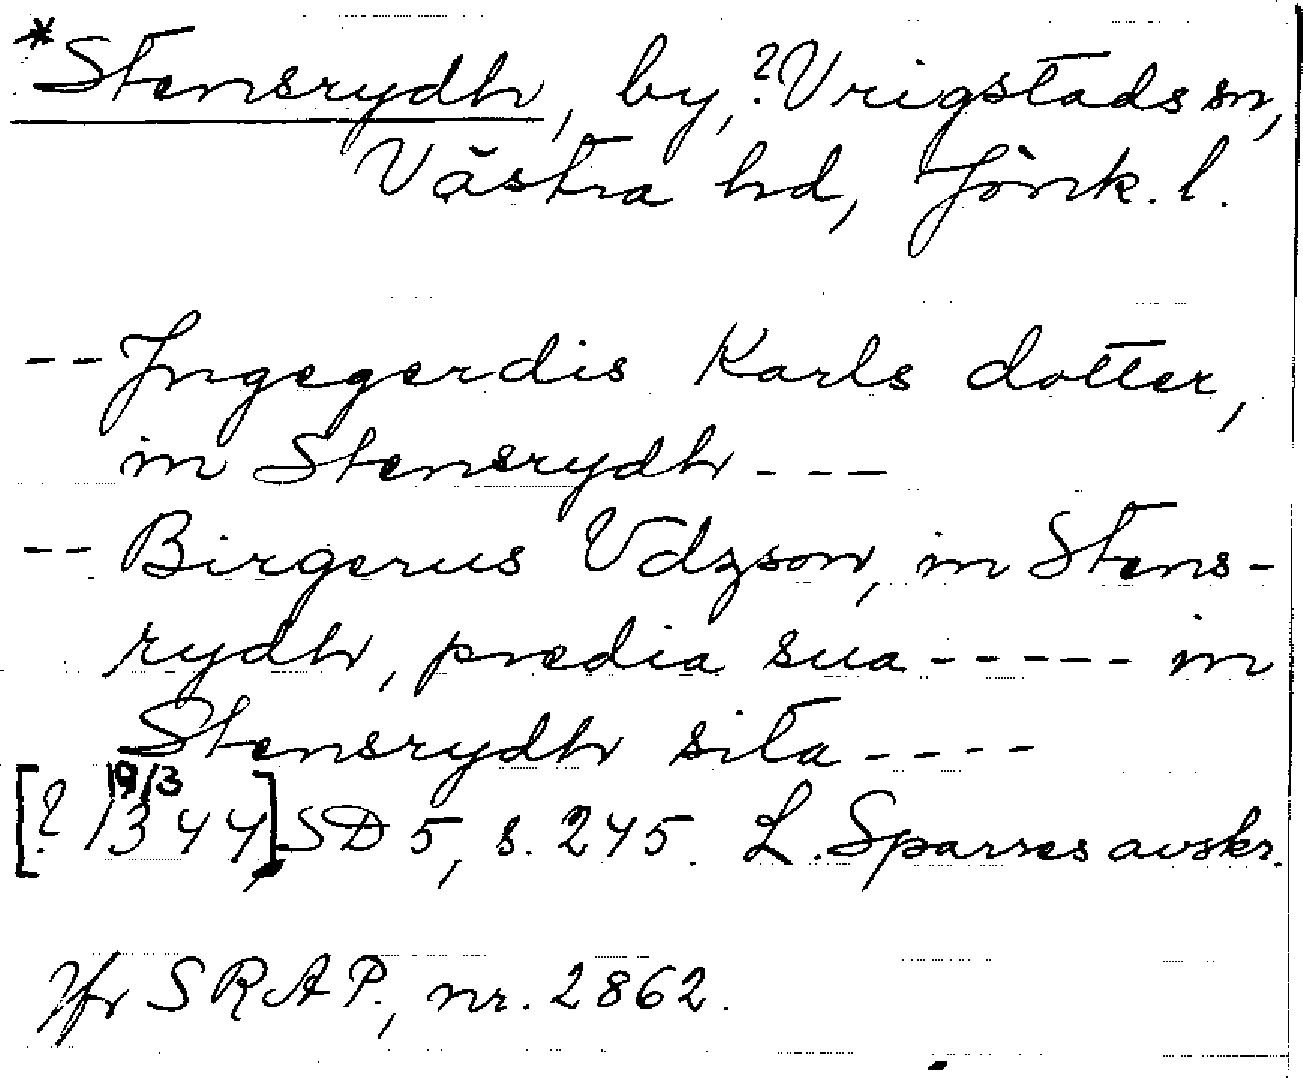 *Stensrydh, by, ?Vrigstads sn,
Västra hd, Jönk. l.
-- Ingegerdis Karls dotter,
in Stensrydh ---
-- Birgerus Vdzson, in Stens-
rydh, predia sua ----- in
Stensrydh sita ----
19/3
[? 1344,] SD 5, s. 245. L. Sparres avskr.
Jfr SRAP, nr. 2862.